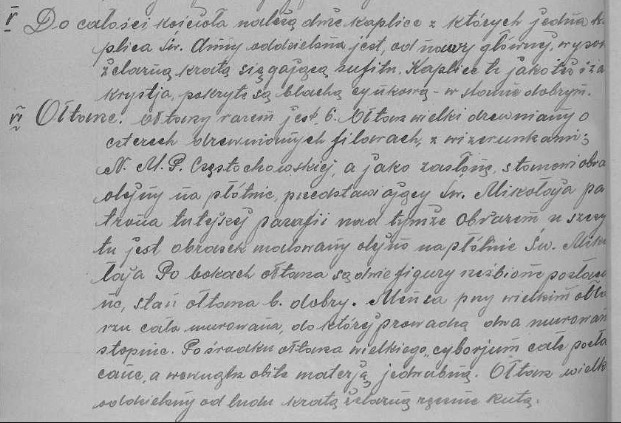 V Do całości kościoła należą dwie kaplice z których jedna ka
plica Św. Anny oddzielona jest, od nawy głównej, wysok
żelazną kratą sięgającą sufitu. Kaplice te jako też i za
krystja, pokryte są blachą cynkową - w stanie dobrym.
VI Ołtarze. Ołtarzy razem jest 6. Ołtarz wielki drewniany o
czterech drewnianych filarach, z wizerunkami:
N. M. P. Częstochowskiej, a jako zasłonę, stanowi obra
olejny na płótnie, przedstawiający Św. Mikołaja pa
trona tutejszej parafii nad tymże obrazem u szczy
tu jest obrazek malowany olejno na płótnie Św. Miko
łaja Po bokach ołtarza są dwie figury rzeźbione pozłaca
ne, stan ołtarza b. dobry. Mensa przy wielkim ołta
rzu cała murowana, do której prowadzą dwa murowan
stopnie. Pośrodku ołtarza wielkiego, cyborjum całe pozła
cane, a wewnątrz obite materją jedwabną. Ołtarz wielki
oddzielony od ludu kratą żelazną ręcznie kutą.